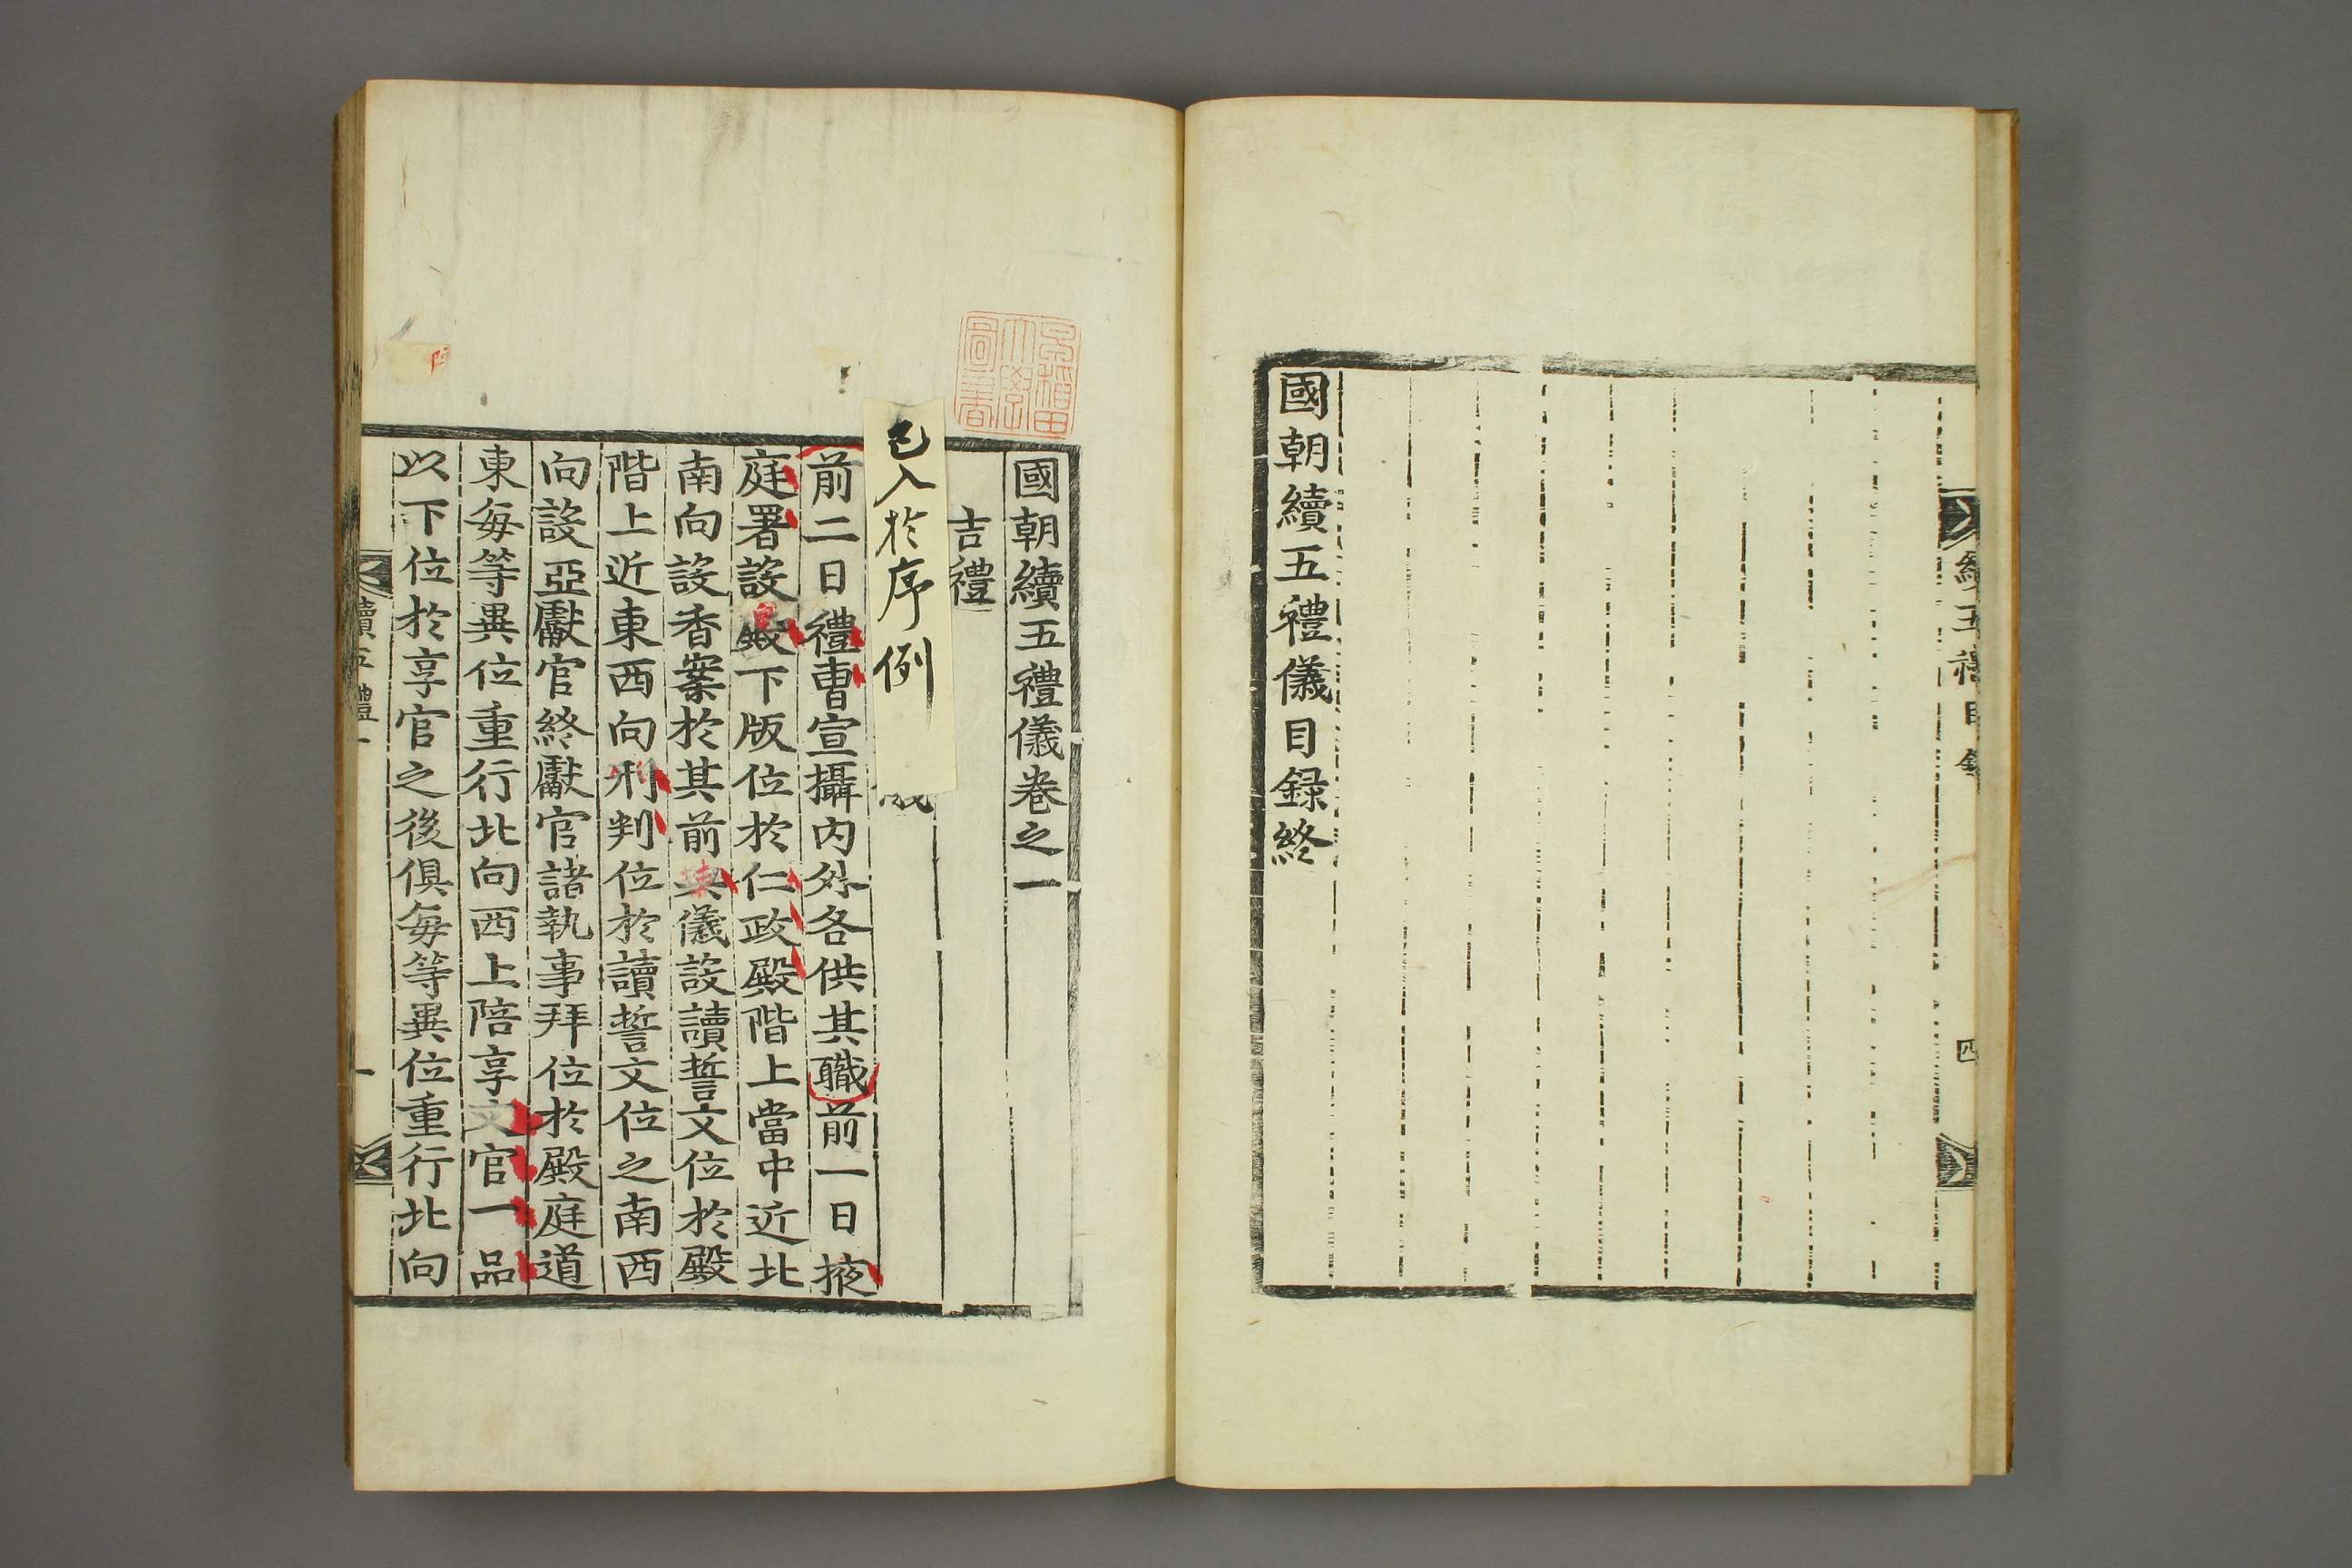 國朝續五禮儀目録終
國朝續五禮儀卷之一
吉禮
已入於序例
儀
前二日禮曹宣攝内外各供其職前一日掖
庭署設殿下版位於仁政殿階上當中近北
南向設香案於其前典儀設讀誓文位於殿
階上近東西向刑判位於讀誓文位之南西
向設亞獻官終獻官諸執事拜位於殿庭道
東每等異位重行北向西上陪享文官一品
以下位於享官之後俱每等異位重行北向
續五禮一
一
續五禮目錄
四
早稻田大學圖書